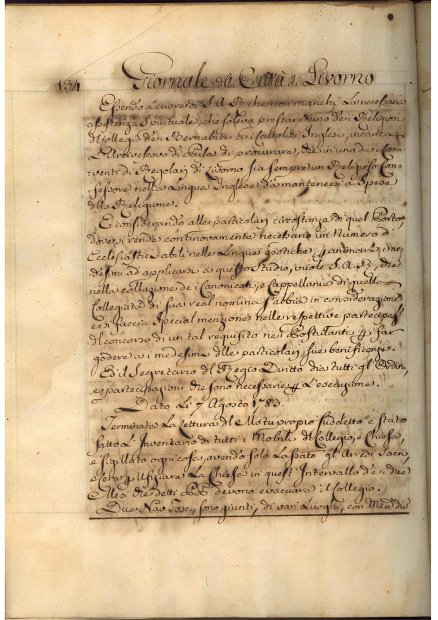 134 Giornale della Città di Livorno
Essendo a cuore di S. A. R. che non manchi la necessaria
assistenza Spirituale, che soleva prestare uno dei Religiosi
del Collegio dei Bernabiti ai Cattolici Inglesi, incarica
L'Arcivescovo di Pisa di procurare, che in uno dei Con-
venti di Regolari di Livorno sia sempre un Religioso Con-
fessore nella Lingua Inglese da mantenersi a Spese
della Religione.
E considerando alle particolari circostanze di quel Porto
dove si rende continovamente necessario un Numero d'
Ecclesiastici abili nelle Lingue per animare i me-
desimi ad applicare a questo Studio, vuole S. A. R. che
nella collazione de' Canonicati, e Cappellanie di quella
Collegiata di sua real nomina s'abbia in considerazione
e si faccia Special menzione nelle respettive partecipaz.
del concorso di un tal requisito nei Postulanti per far
godere a i medesimi delle particolari sue beneficenze.
E il Segretario del Regio Diritto dia tutti gl' Ordini,
e partecipazioni che sono necessarie per l'esecuzione.
Dato Li 7 Agosto 1783.
Terminata la lettura del Motuproprio suddetto è stato
fatto l'Inventario di tutti i Mobili del Collegio, e Chiesa,
e sigillato ogni cosa, avendo solo lassato gl' Arredi Sacri,
e Cera per Ufiziare la Chiesa in quest' Intervallo de' due
Mesi che detti PP. devono evacuare il Collegio.
Due Nav. sono giunti, di vari Luoghi, con